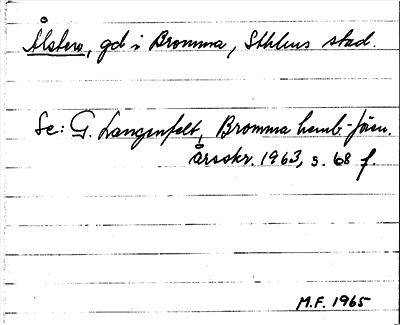 Ålsten, gd i Bromma, Sthlms stad.
Se: G. Langenfelt, Bromma hemb.-fören.
årsskr. 1963, s. 68 f.
M.F. 1965